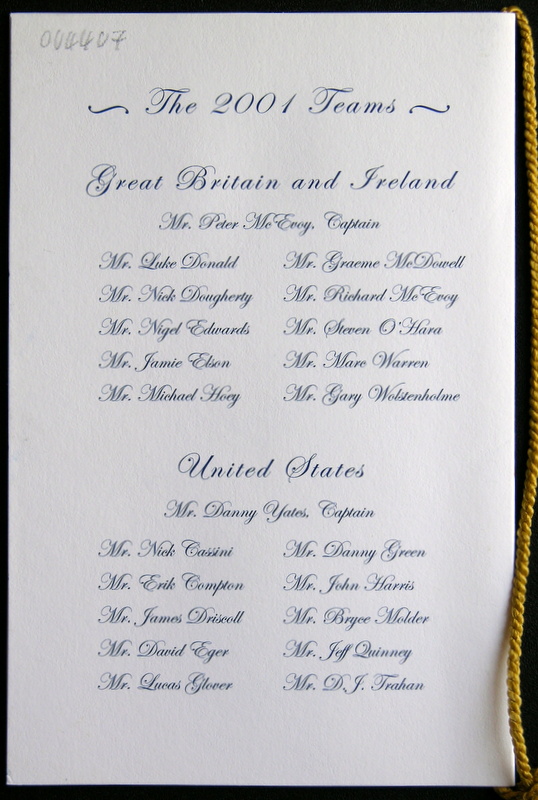 004407
The 2001 Teams
Great Britain and Ireland
Mr. Peter McEvoy, Captain
Mr. Luke Donald Mr. Graeme McDowell
Mr. Nick Dougherty Mr. Richard McEvoy
Mr. Nigel Edwards Mr. Steven O'Hara
Mr. Jamie Elson Mr. Marc Warren
Mr. Michael Hoey Mr. Gary Wolstenholme
United States
Mr. Danny Yates, Captain
Mr. Nick Cassini Mr. Danny Green
Mr. Erik Compton Mr. John Harris
Mr. James Driscoll Mr. Bryce Molder
Mr. David Eger Mr. Jeff Quinney
Mr. Lucas Glover Mr. D.J. Trahan